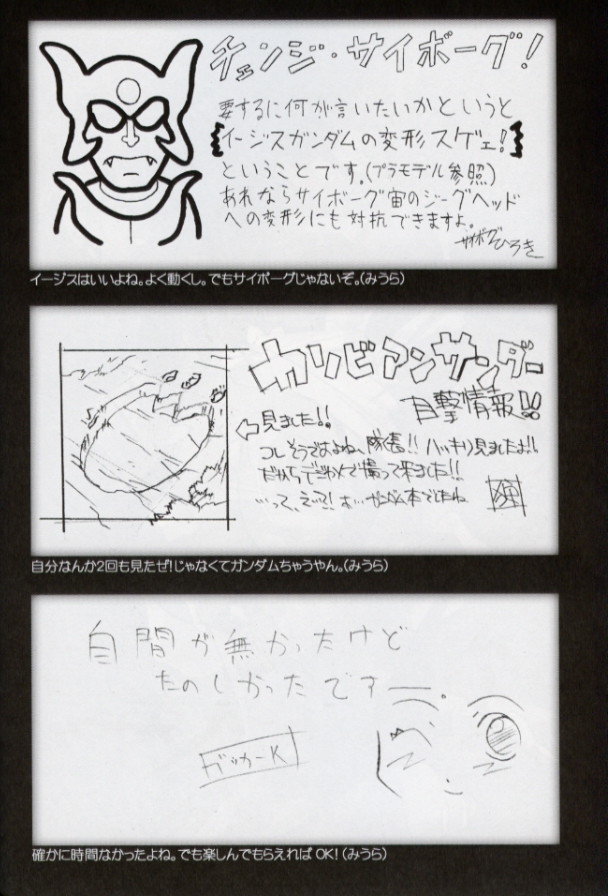 チェンジ・サイボーグ!
要するに何が言いたいかというと
イージスガンダムの変形スゲェ!
ということです。(プラモデル参照)
あれならサイボーグ宙のジーグヘッド
への変形にも対抗できますよ。
サイボーグひろき
イージスはいいよね。よく動くし。でもサイボーグじゃないぞ。(みうら)
カリビアンサンダー
目撃情報!!
見ました!!
コレそうですよね、隊長!! ハッキリ見ましたよ!!
で撮って来ました!!
自分なんか2回も見たぜ!じゃなくてガンダムちゃうやん。(みうら)
自間が無かったけど
たのしかったですー。
ガッカーK
確かに時間なかったよね。でも楽しんでもらえれば OK!(みうら)